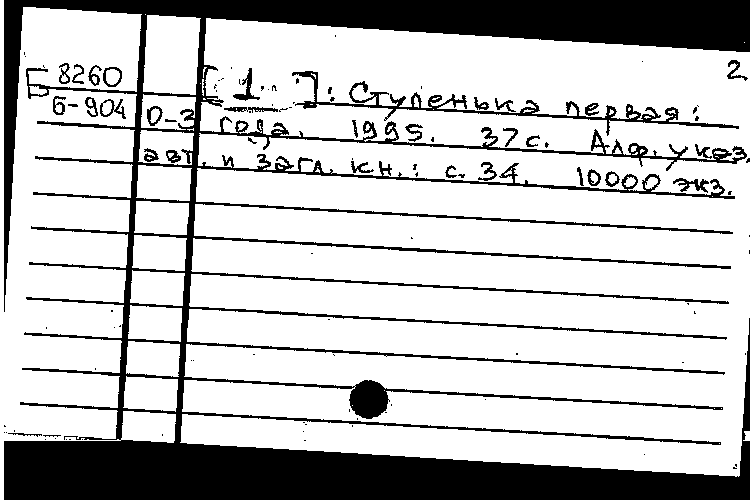 2
8260
Б-904
[1]: Ступенька первая:
0-3 года. 1995. 37с. Алф. указ.
авт. и загл. кн.: с. 34. 10000 экз.